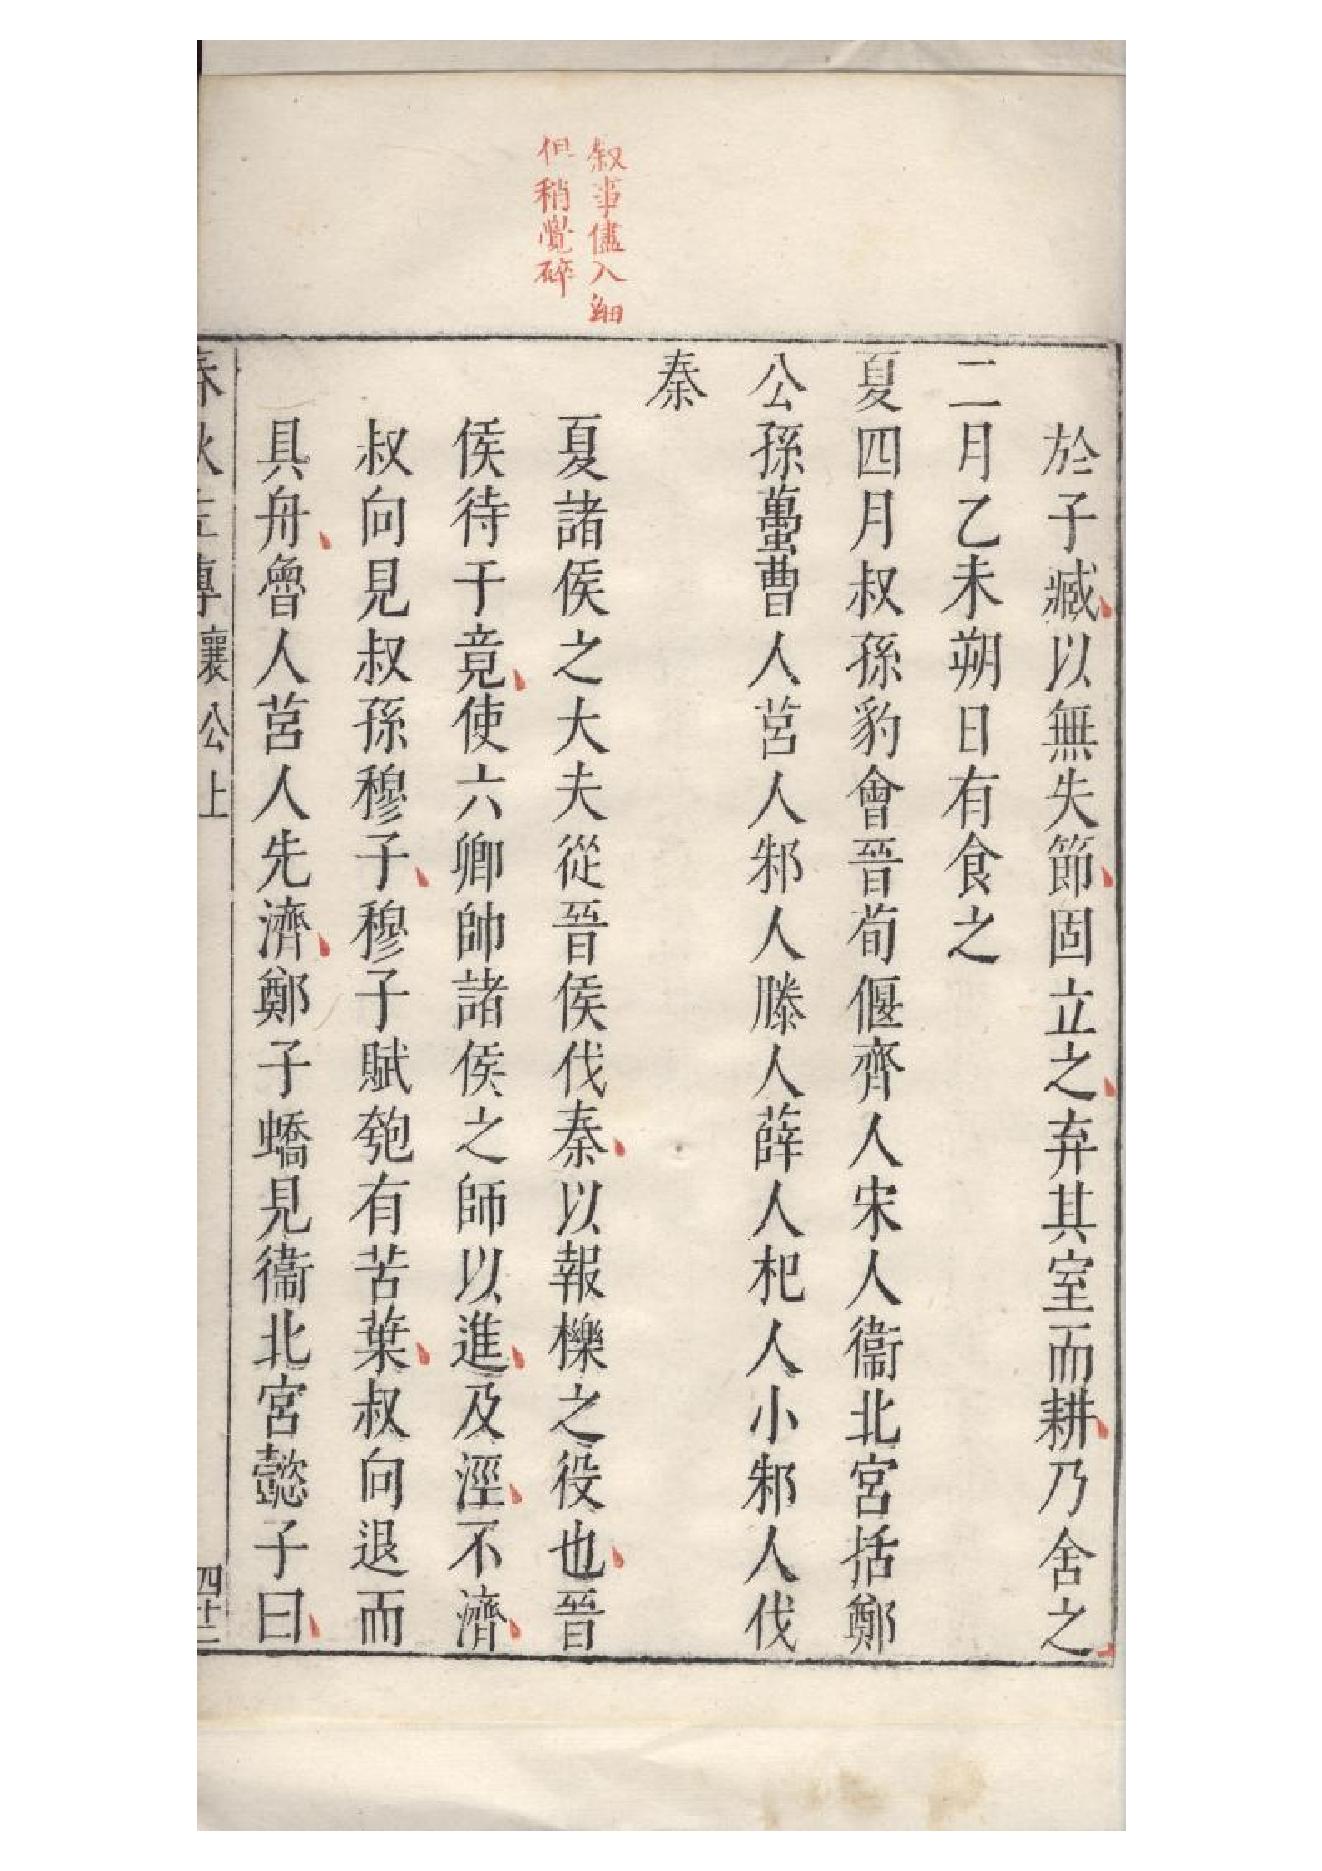 叙事儘入細
但稍覺碎
於子臧以無失節固立之弃其室而耕乃舍之
二月乙未朔日有食之
夏四月叔孫豹會晉荀偃齊人宋人衞北宮括鄭
公孫蠆曹人莒人邾人滕人薛人杞人小邾人伐
秦
夏諸侯之大夫從晉侯伐秦以報櫟之役也晉
侯待于竟使六卿帥諸侯之師以進及涇不濟
叔向見叔孫穆子穆子賦匏有苦葉叔向退而
具舟魯人莒人先濟鄭子蟜見衞北宮懿子曰
春秋左傳 襄公上 四十二